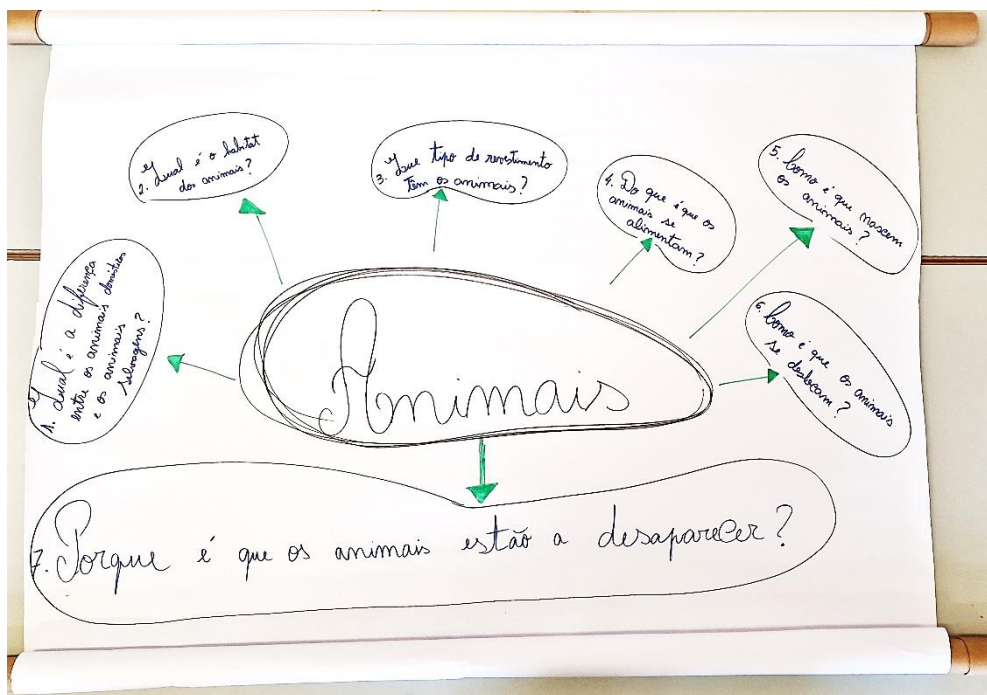 Animais
1. Qual é a diferença
entre os animais domésticos
e os animais
selvagens?
2. Qual é o habitat
dos animais?
3. Que tipo de revestimento
têm os animais?
4. Do que é que os
animais se
alimentam?
5. Como é que nascem
os animais?
6. Como é que os animais
se deslocam?
7. Porque é que os animais estão a desaparecer?